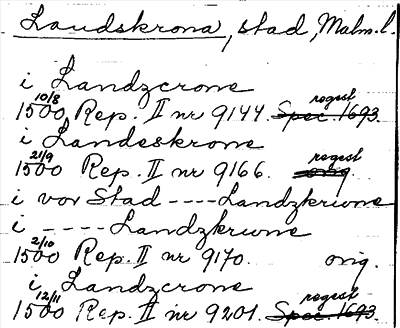 Landskrona, stad, Malm.l.
i Landzcrone
1500 10/8 Rep. II nr 9144. Spec. 1693. regest
i Landeskrone
1500 21/9 Rep. II nr 9166. orig. regest
i vor Stad ---- Landzkriwne
i - - - - Landzkrwne
1500 2/10 Rep. II nr 9170. orig.
i Landzcrone
1500 12/11 Rep. II nr 9201. Spec. 1693. regest